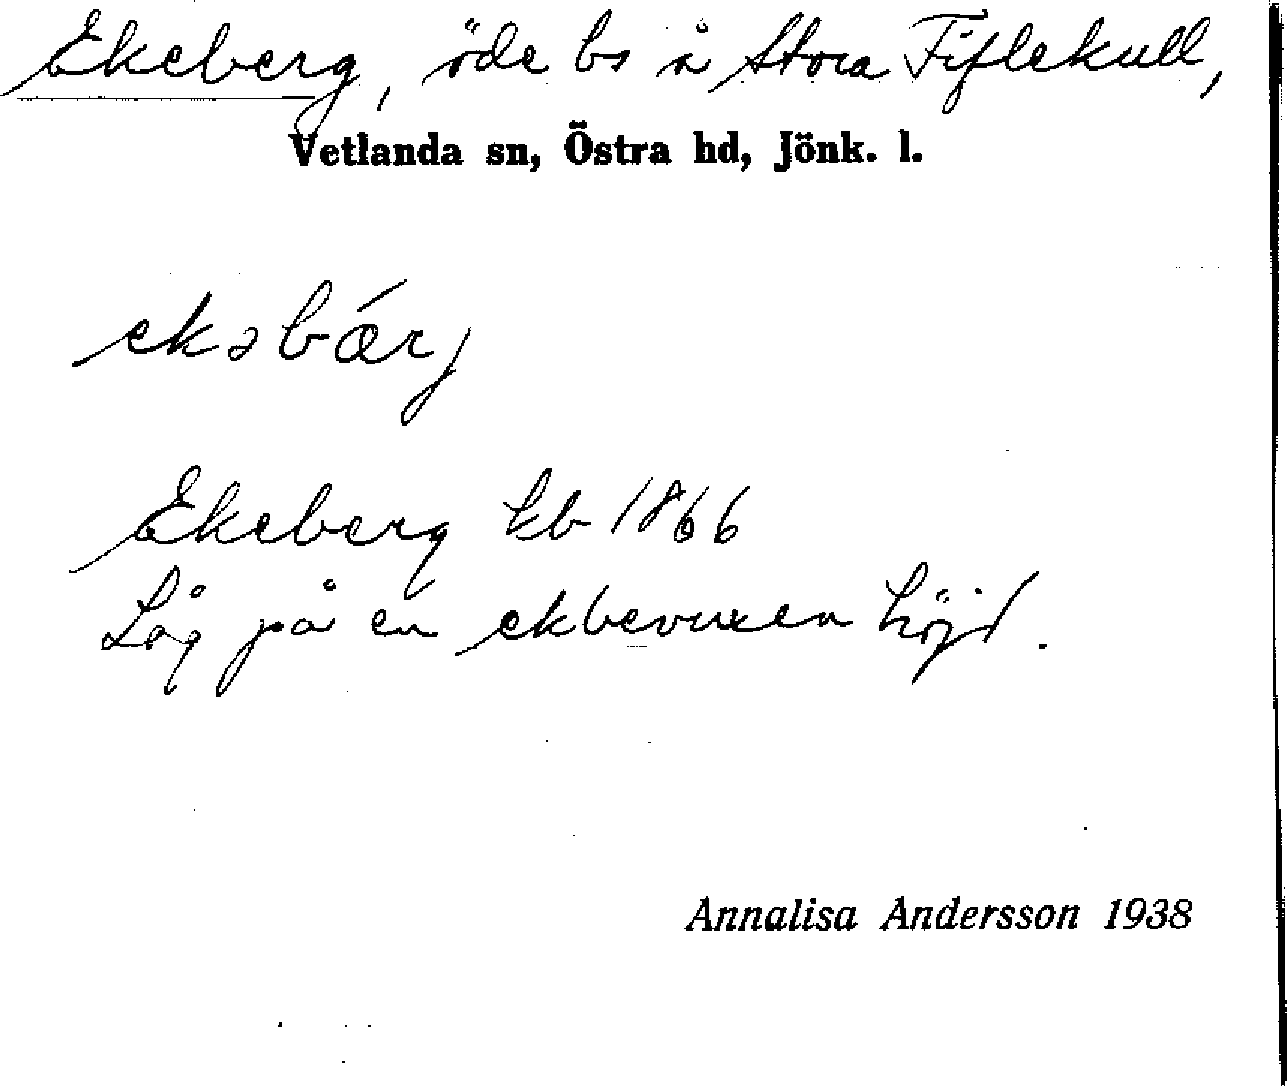 Ekeberg, öde bs å Stora Fiflekull,
Vetlanda sn, Östra hd, Jönk. l.
ekəbǽrj
Ekeberg kb 1866
Låg på en ekbevuxen höjd.
Annalisa Andersson 1938